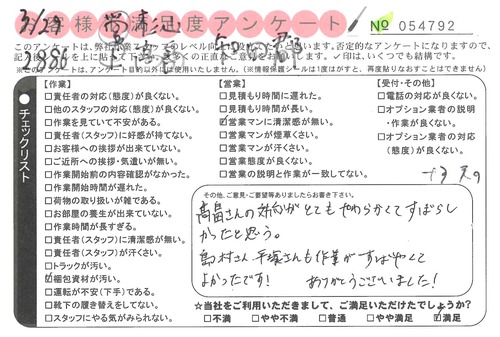 お客様満足度アンケート
№ 054792
このアンケートは、弊社作業スタッフのレベル向上の
否定的なアンケートになりますので、
※このアンケートは、アンケート目的以外は使用いたしません。(※情報保護シールは1度はがすと、再度貼りなおすことはできません)
チェックリスト
【作業】
□責任者の対応(態度)が良くない。
□他のスタッフの対応(態度)が良くない。
□作業を見ていて不安がある。
□責任者(スタッフ)に好感が持てない。
□お客様への挨拶が出来ていない。
□ご近所への挨拶・気遣いが無い。
□作業開始前の内容確認がなかった。
□作業開始時間が遅れた。
□荷物の取り扱いが雑である。
□お部屋の養生が出来ていない。
□作業時間が長すぎる。
□責任者(スタッフ)に清潔感が無い。
□責任者(スタッフ)が汗くさい。
□トラックが汚い。
☑梱包資材が汚い。
□運転が不安(下手)である。
□靴下の履き替えをしてない。
□スタッフにやる気がみられない。
【営業】
□見積もり時間に遅れた。
□見積もり時間が長い。
☑営業マンに清潔感が無い。
□営業マンが煙草くさい。
□営業マンが汗くさい。
□営業態度が良くない。
□営業の説明と作業が一致してない。
【受付・その他】
□電話の対応が良くない。
□オプション業者の説明・作業が良くない。
□オプション業者の対応(態度)が良くない。
その他、ご意見・ご要望等ありましたらお書き下さい。
高畠さんの対応がとてもやわらかくてすばらし
かったと思う。
島村さん 平塚さんも作業がすばやくて
よかったです! ありがとうございました!
☆当社をご利用いただきまして、ご満足いただけたでしょうか?
□不満 □やや不満 □普通 □やや満足 ☑満足